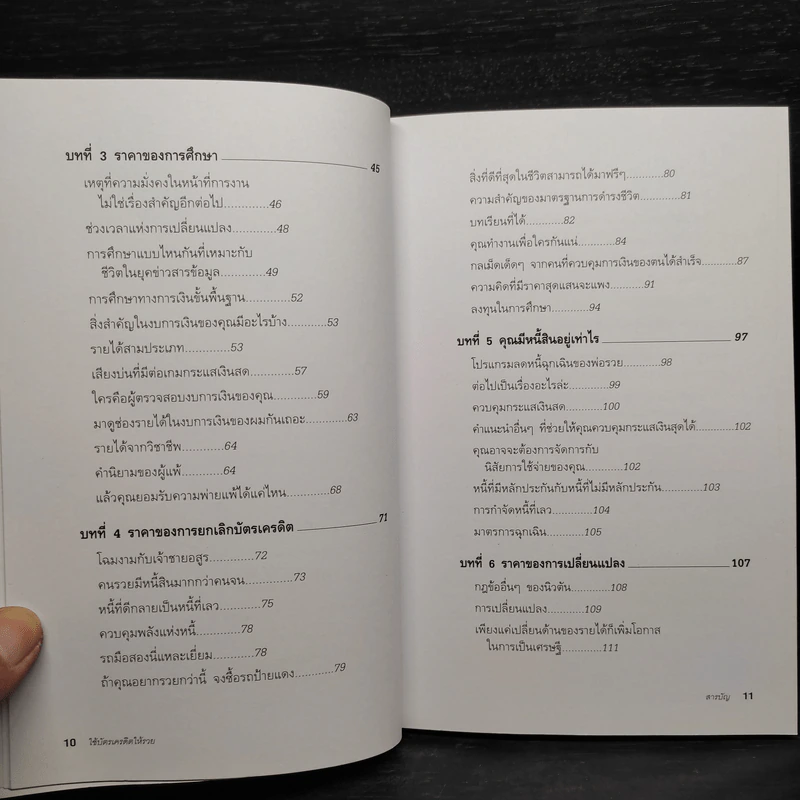 บทที่ 3 ราคาของการศึกษา 45
เหตุที่ความมั่งคงในหน้าที่การงาน
ไม่ใช่เรื่องสำคัญอีกต่อไป............46
ช่วงเวลาแห่งการเปลี่ยนแปลง............48
การศึกษาแบบไหนกันที่เหมาะกับ
ชีวิตในยุคข่าวสารข้อมูล............49
การศึกษาทางการเงินขั้นพื้นฐาน............52
สิ่งสำคัญในงบการเงินของคุณมีอะไรบ้าง............53
รายได้สามประเภท............53
เสียงบ่นที่มีต่อเกมกระแสเงินสด............57
ใครคือผู้ตรวจสอบงบการเงินของคุณ............59
มาดูช่องรายได้ในงบการเงินของผมกันเถอะ............63
รายได้จากวิชาชีพ............64
คำนิยามของผู้แพ้............64
แล้วคุณยอมรับความพ่ายแพ้ได้แค่ไหน............68
บทที่ 4 ราคาของการยกเลิกบัตรเครดิต 71
โฉมงามกับเจ้าชายอสูร............72
คนรวยมีหนี้สินมากกว่าคนจน............73
หนี้ที่ดีกลายเป็นหนี้ที่เลว............75
ควบคุมพลังแห่งหนี้............78
รถมือสองนี่แหละเยี่ยม............78
ถ้าคุณอยากรวยกว่านี้ จงซื้อรถป้ายแดง............79
10 ใช้บัตรเครดิตให้รวย
สิ่งที่ดีที่สุดในชีวิตสามารถได้มาฟรีๆ............80
ความสำคัญของมาตรฐานการดำรงชีวิต............81
บทเรียนที่ได้............82
คุณทำงานเพื่อใครกันแน่............84
กลเม็ดเด็ดๆ จากคนที่ควบคุมการเงินของตนได้สำเร็จ............87
ความคิดที่มีราคาสุดแสนจะแพง............91
ลงทุนในการศึกษา............94
บทที่ 5 คุณมีหนี้สินอยู่เท่าไร 97
โปรแกรมลดหนี้ฉุกเฉินของพ่อรวย............98
ต่อไปเป็นเรื่องอะไรล่ะ............99
ควบคุมกระแสเงินสด............100
คำแนะนำอื่นๆ ที่ช่วยให้คุณควบคุมกระแสเงินสุดได้............102
คุณอาจจะต้องการจัดการกับ
นิสัยการใช้จ่ายของคุณ............102
หนี้ที่มีหลักประกันกับหนี้ที่ไม่มีหลักประกัน............103
การกำจัดหนี้ที่เลว............104
มาตรการฉุกเฉิน............105
บทที่ 6 ราคาของการเปลี่ยนแปลง 107
กฎข้ออื่นๆ ของนิวตัน............108
การเปลี่ยนแปลง............109
เพียงแค่เปลี่ยนด้านของรายได้ก็เพิ่มโอกาส
ในการเป็นเศรษฐี............111
สารบัญ 11